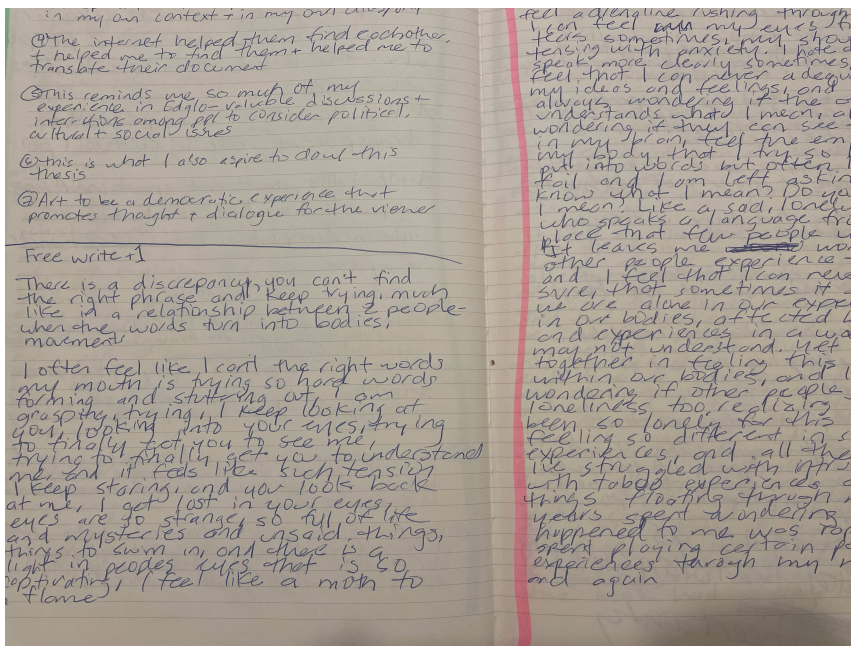 in my own context + in my own
④ The internet helped them find eachother,
+ helped me to find them + helped me to
translate their document
⑤ This reminds me so much of my
experience in Edglo - valuble discussions +
interctions among ppl to consider political,
cultural + social issues
⑥ this is what I also aspire to do w/ this
thesis
⑦ Art to be a democratic experience that
promotes thought + dialogue for the viewer
Free write #1
There is a discrepancy, you can't find
the right phrase and keep trying, much
like in a relationship between 2 people-
when the words turn into bodies,
movements
I often feel like I can't the right words
my mouth is trying so hard words
forming and stuttering out, I am
grasping, trying, I keep looking at
you, looking into your eyes, trying
to finally get you to see me,
trying to finally get you to understand
me, and it feels like such tension
I keep staring, and you look back
at me, I get lost in your eyes,
eyes are so strange, so full of life
and mysteries and unsaid things,
things to swim in, and there is a
light in peoples eyes that is so
captivating, I feel like a moth to
flame
feel adrenaline rushing through
I can feel my eyes
tears sometimes, my
tensing with anxiety. I hate
speak more clearly sometimes,
feel that I can never
my ideas and feelings, and
always wondering if the
understands what I mean,
wondering if they can see
in my brain, feel the
my body, that I try so
put into words but often
fail and I am left asking
know what I mean? Do you
I mean? Like a sad, lonely
who speaks a language
place that few people
It leaves me
other people experience
and I feel that I can
sure, that sometimes it
we are alone in our
in our bodies, affected
and experiences in a
may not understand. Yet
together in feeling this
within our bodies, and I
wondering if other people
loneliness too, realizing
been so lonely for this
feeling so different in
experiences, and all the
I've struggled with
with taboo experiences
things floating through
years spent wondering
happened to me was
spent playing certain
experiences through my
and again